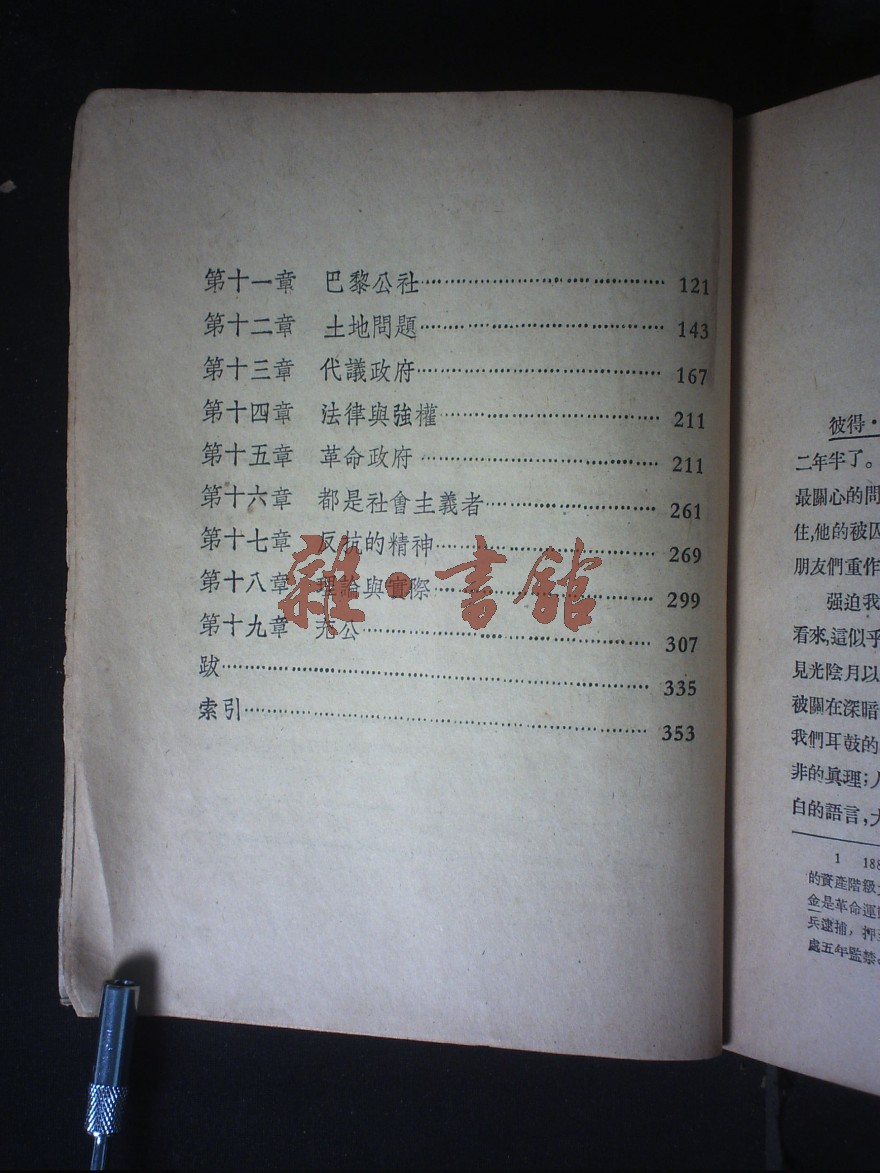 第十一章 巴黎公社……………………………… 121
第十二章 土地問題……………………………… 143
第十三章 代議政府……………………………… 167
第十四章 法律與強權…………………………… 211
第十五章 革命政府……………………………… 211
第十六章 都是社會主義者……………………… 261
第十七章 反抗的精神…………………………… 269
第十八章 理論與實際…………………………… 299
第十九章 充公…………………………………… 307
跋………………………………………………… 335
索引……………………………………………… 353
雜·書館
彼得·
二年半了。
最關心的問
住,他的被囚
朋友們重作
强迫我
看來,這似乎
見光陰月以
被關在深暗
我們耳鼓的
非的眞理;
白的語言,
1 188
的資產階級
金是革命運
兵逮捕，押
處五年監禁